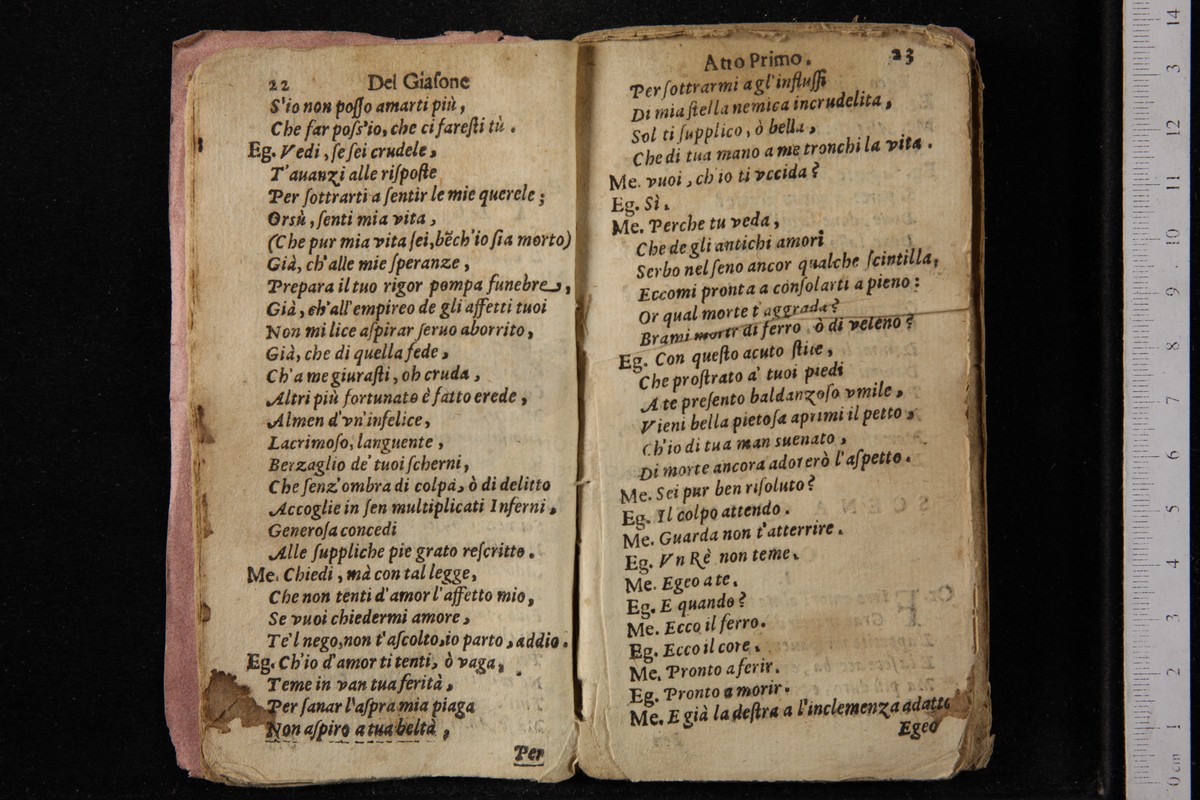 22 Del Giaſone
S'io non poſſo amarti più,
Che far poſs'io, che ci fareſti tù.
Eg. Vedi, ſe ſei crudele,
T'auanzi alle riſpoſte
Per ſottrarti a ſentir le mie querele;
Orsù, ſenti mia vita,
(Che pur mia vita ſei, bẽch'io ſia morto)
Già, ch'alle mie ſperanze,
Prepara il tuo rigor pompa funebre,
Già, ch'all'empireo de gli affetti tuoi
Non mi lice aſpirar ſeruo aborrito,
Già, che di quella fede,
Ch'a me giuraſti, oh cruda,
Altri più fortunato è fatto erede,
Almen d'vn'infelice,
Lacrimoſo, languente,
Berzaglio de' tuoi ſcherni,
Che ſenz'ombra di colpa, ò di delitto
Accoglie in ſen multiplicati Inferni,
Generoſa concedi
Alle ſuppliche pie grato reſcritto.
Me. Chiedi, mà con tal legge,
Che non tenti d'amor l'affetto mio,
Se vuoi chiedermi amore,
Te'l nego, non t'aſcolto, io parto, addio.
Eg. Ch'io d'amor ti tenti, ò vaga,
Teme in van tua ferità,
Per ſanar l'aſpra mia piaga
Non aſpiro a tua beltà,
Per
Atto Primo. 23
Per ſottrarmi agl'influſſi
Di mia ſtella nemica incrudelita,
Sol ti ſupplico, ò bella,
Che di tua mano a me tronchi la vita.
Me. vuoi, ch'io ti vccida?
Eg. Sì.
Me. Perche tu veda,
Che de gli antichi amori
Serbo nel ſeno ancor qualche ſcintilla,
Eccomi pronta a conſolarti a pieno:
Or qual morte t'aggrada?
Brami morir di ferro, ò di veleno?
Eg. Con queſto acuto ſtile,
Che proſtrato a' tuoi piedi
A te preſento baldanzoſo vmile,
Vieni bella pietoſa aprimi il petto,
Ch'io di tua man suenato,
Di morte ancora adorerò l'aſpetto.
Me. Sei pur ben riſoluto?
Eg. Il colpo attendo.
Me. Guarda non t'atterrire.
Eg. Vn Rè non teme.
Me. Egeo a te.
Eg. E quando?
Me. Ecco il ferro.
Eg. Ecco il core.
Me. Pronto a ferir.
Eg. Pronto a morir.
Me. E già la deſtra a l'inclemenza adatto
Egeo
14
3
12
1
10
9
8
7
6
5
4
3
2
1
0 cm